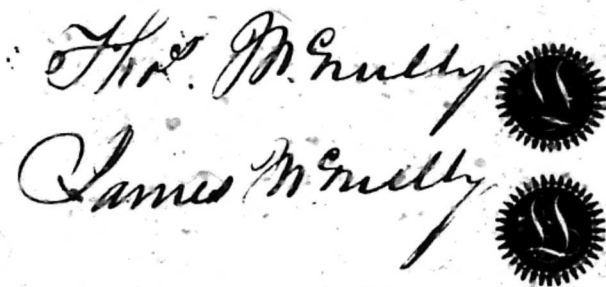 Thos. McNulty
James McNulty